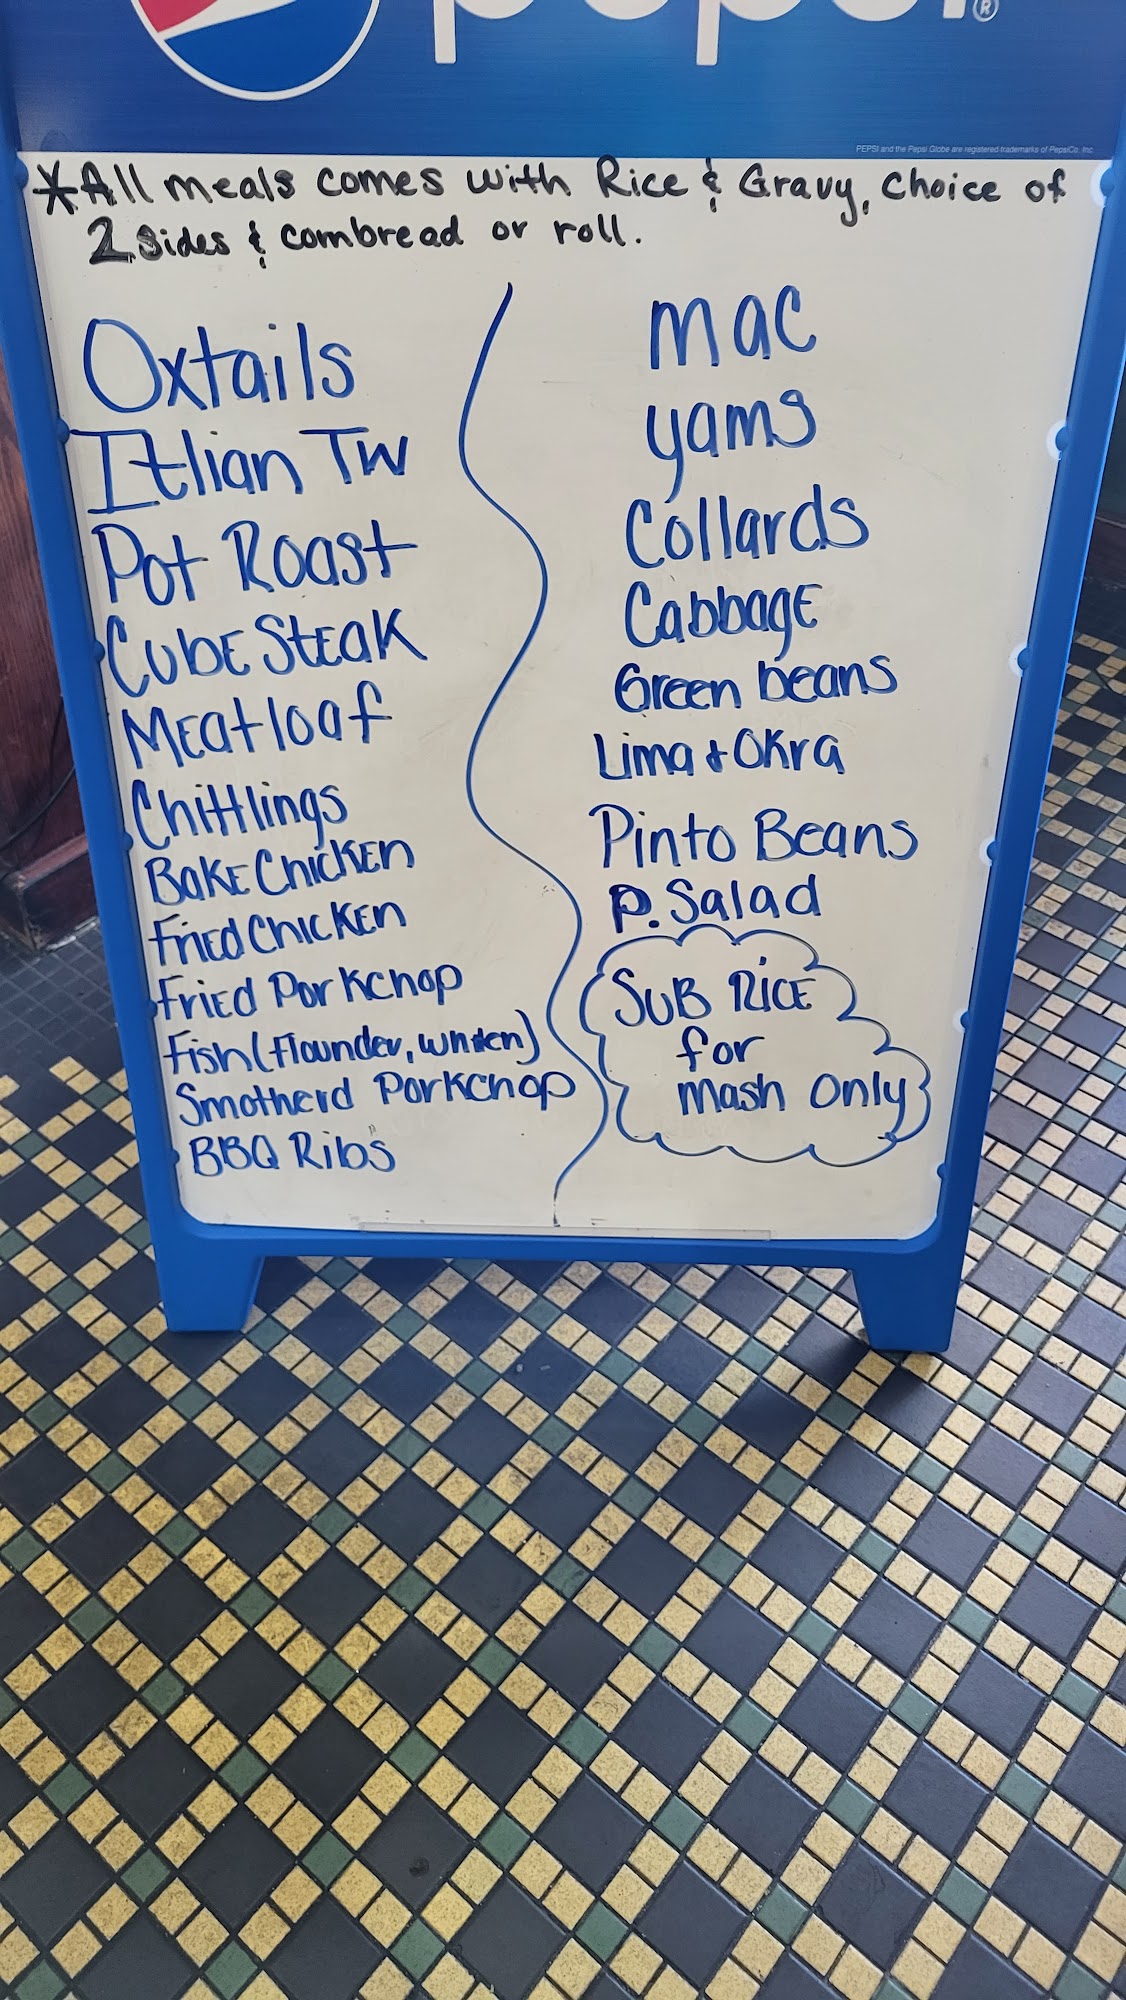 pepsi®
PEPSI and the Pepsi Globe are registered trademarks of PepsiCo, Inc.
*All meals comes with Rice & Gravy, Choice of
2 sides & cornbread or roll.
Oxtails
Itlian TW
Pot Roast
CubE StEak
MEatloaf
Chittlings
BakE ChickEn
FriEd ChickEn
FriEd Porkchop
Fish (Flounder, Whiten)
Smotherd Porkchop
BBQ Ribs
mac
yams
Collards
CabbagE
Green beans
Lima + Okra
Pinto Beans
P. Salad
SUB RICE
for
mash only